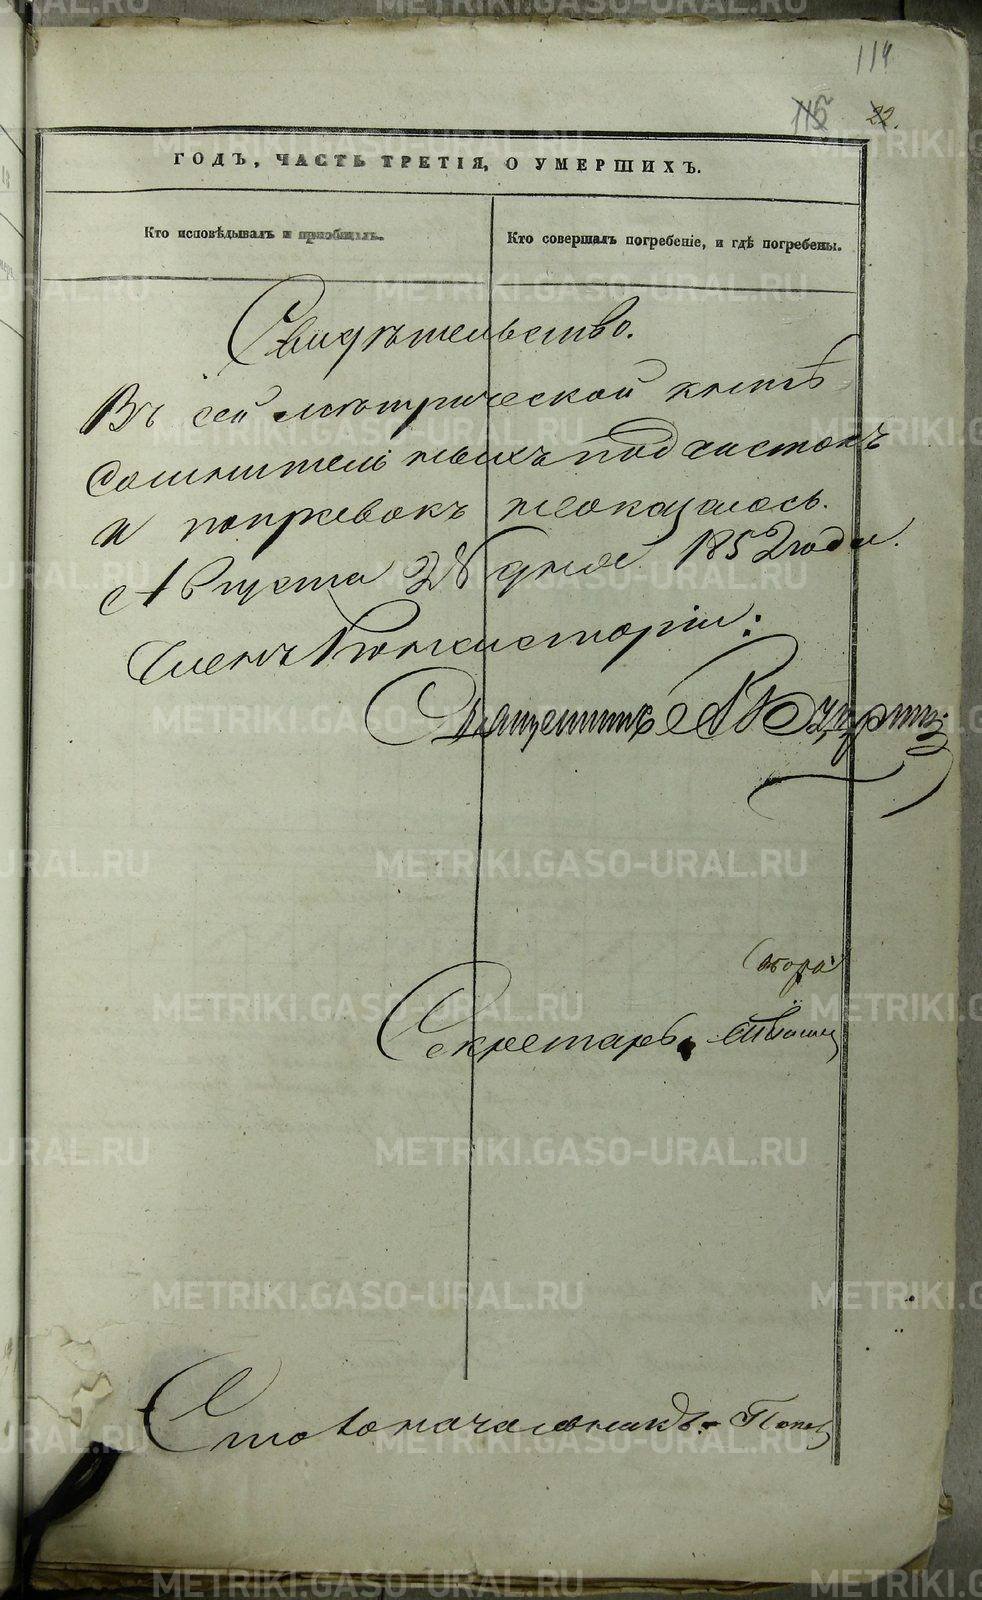 114
115 22.
ГОДЪ, ЧАСТЬ ТРЕТІЯ, О УМЕРШИХЪ.
Кто исповѣдывалъ и пріобщалъ.
Кто совершалъ погребеніе, и гдѣ погребены.
Свидѣтельство.
Въ сей метрической книгѣ
сомнительныхъ подчистокъ
и поправокъ неоказалось.
Августа 28 дня 1852 года.
Членъ Консисторіи:
Священникъ
Секретарь
Столоначальникъ
METRIKI.GASO-URAL.RU